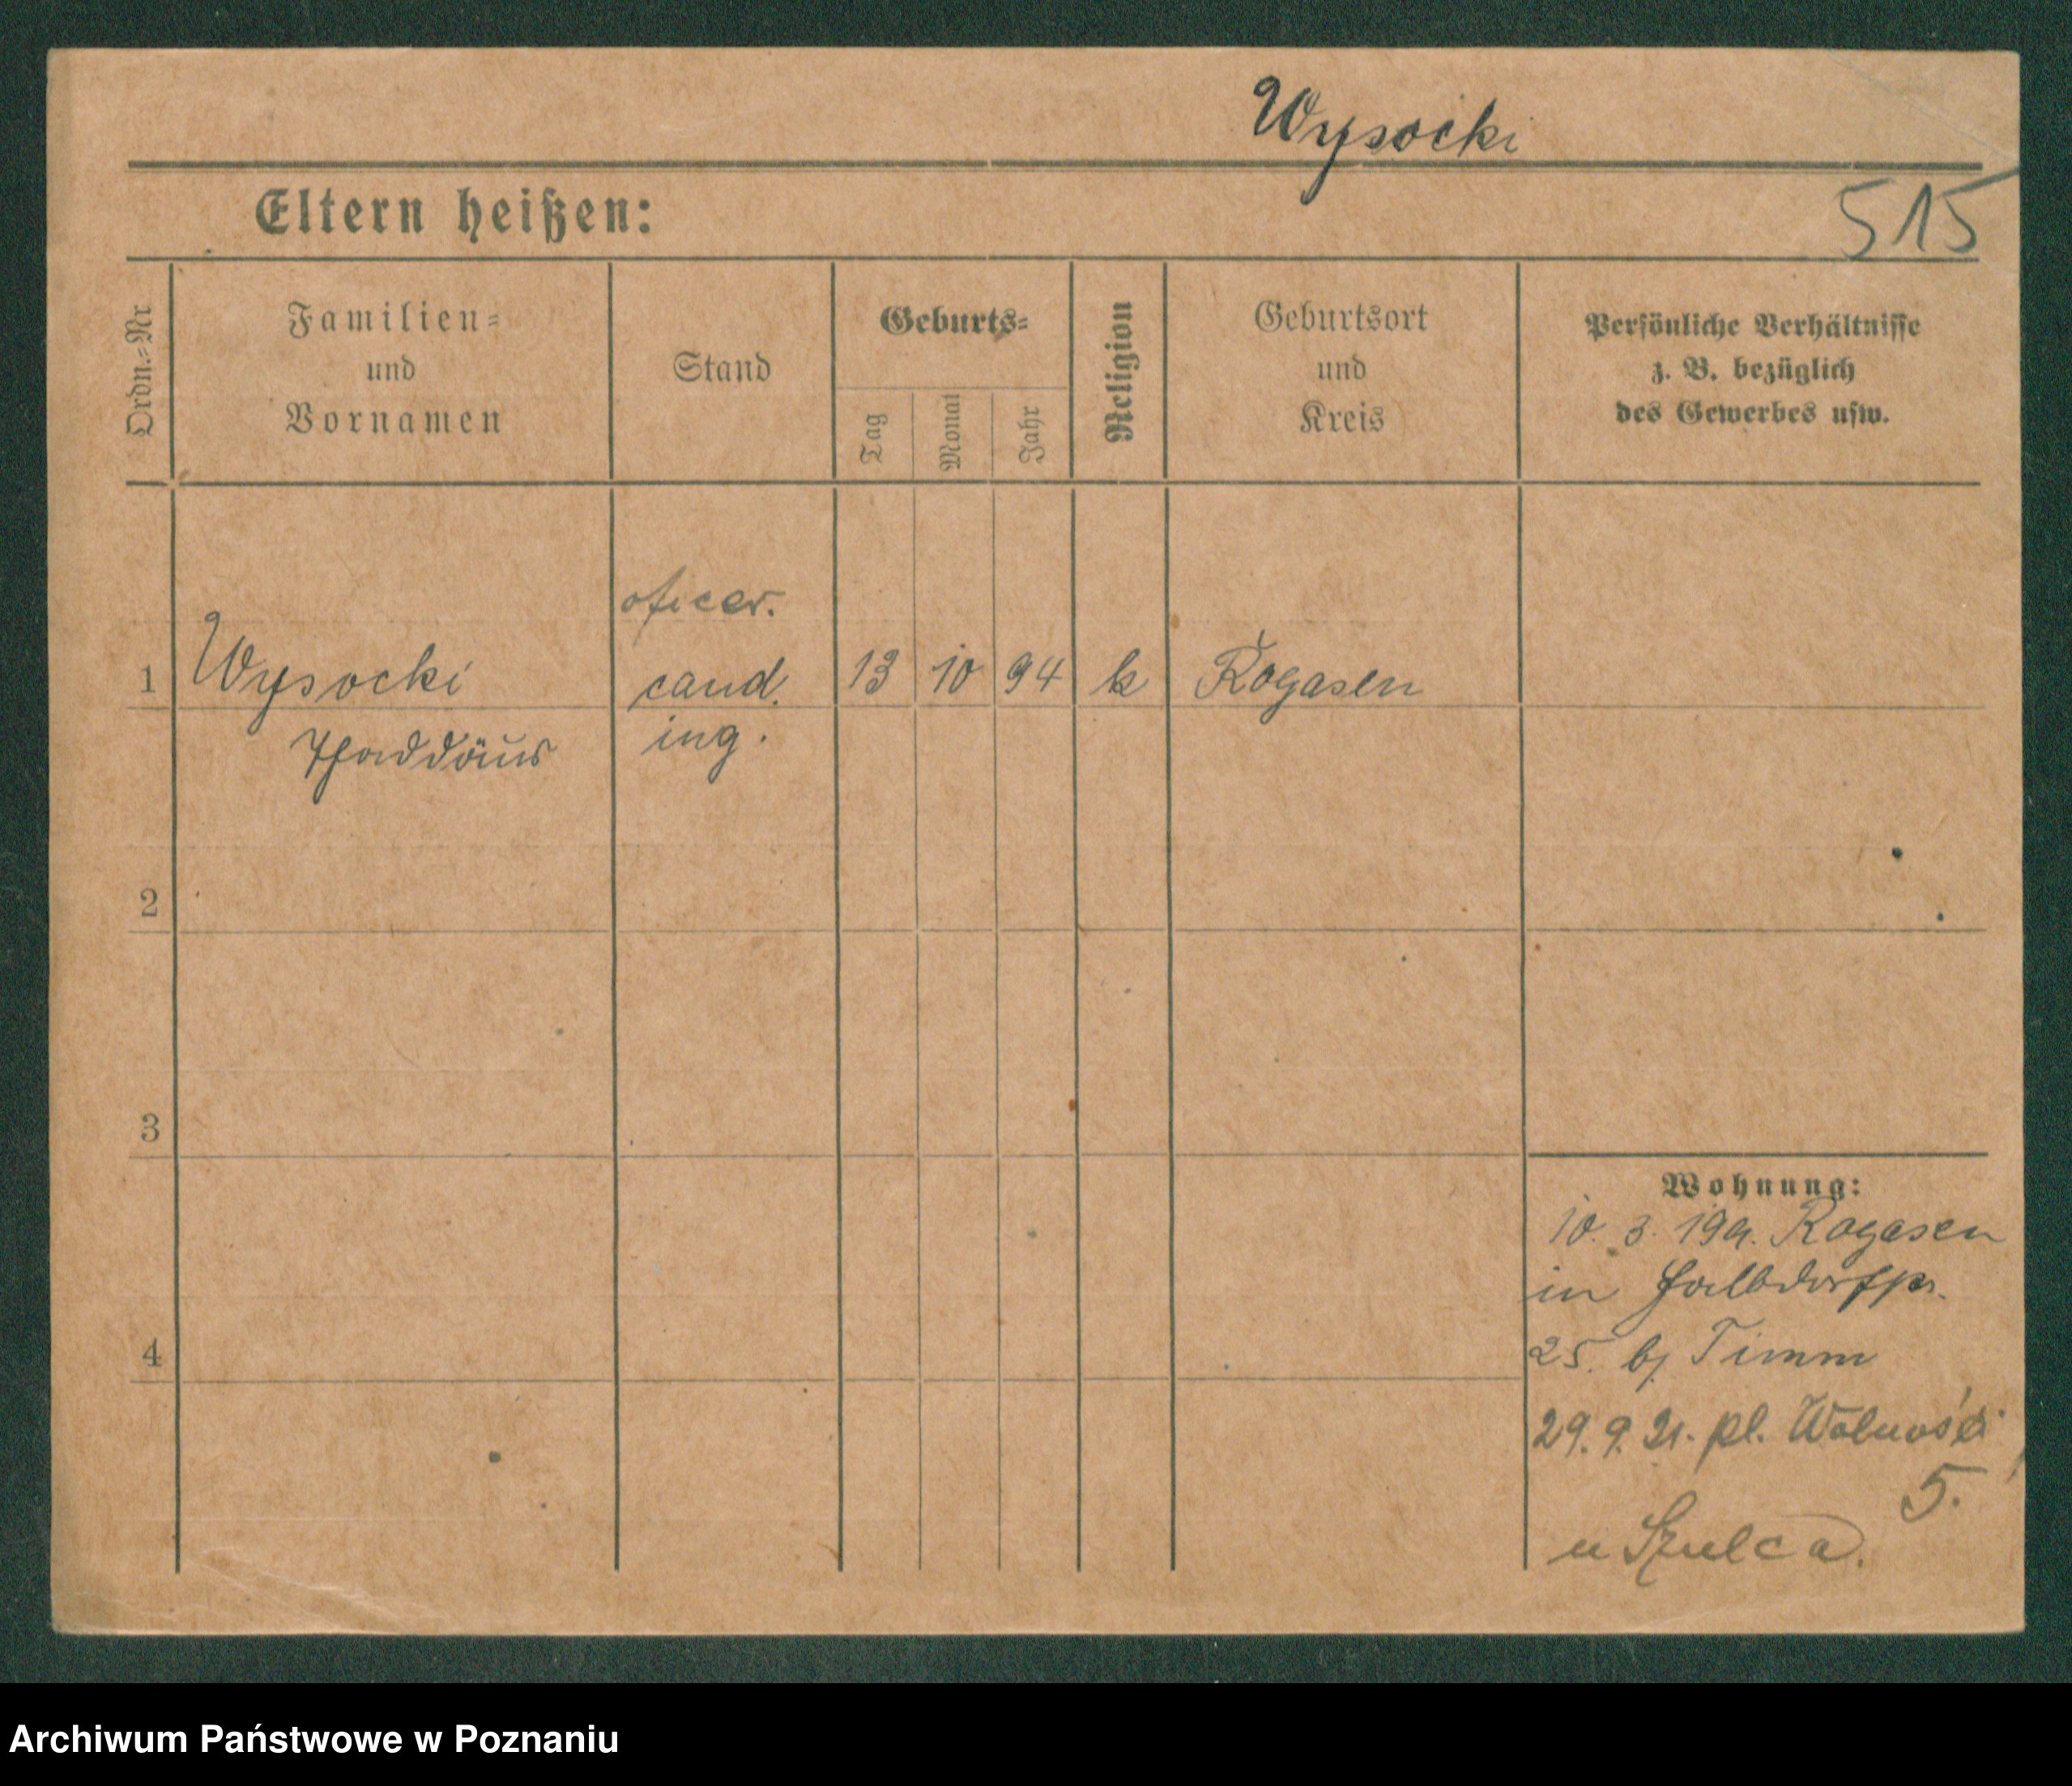 Wysocki
Eltern heißen:
515
Ordn.-Nr
Familien-
und
Vornamen
Stand
Geburts-
Tag
Monat
Jahr
Religion
Geburtsort
und
Kreis
Persönliche Verhältnisse
z. B. bezüglich
des Gewerbes usw.
oficer.
1 Wysocki cand. 13 10 94 k Rogasen
Thaddäus ing.
2
3
4
Wohnung:
10. 3. 19 Rogasen
in Halbdorfstr.
25. bj Timm
29. 9. 21. pl. Wolności
5.
u Szulca.
Archiwum Państwowe w Poznaniu